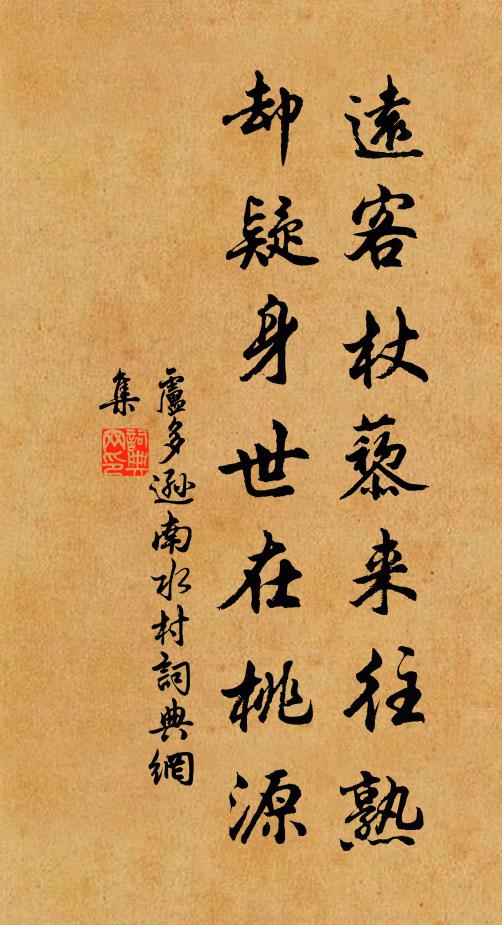 遠客杖藜来往熟
却疑身世在桃源
盧多遜南水村詞典網
集
詞典網印